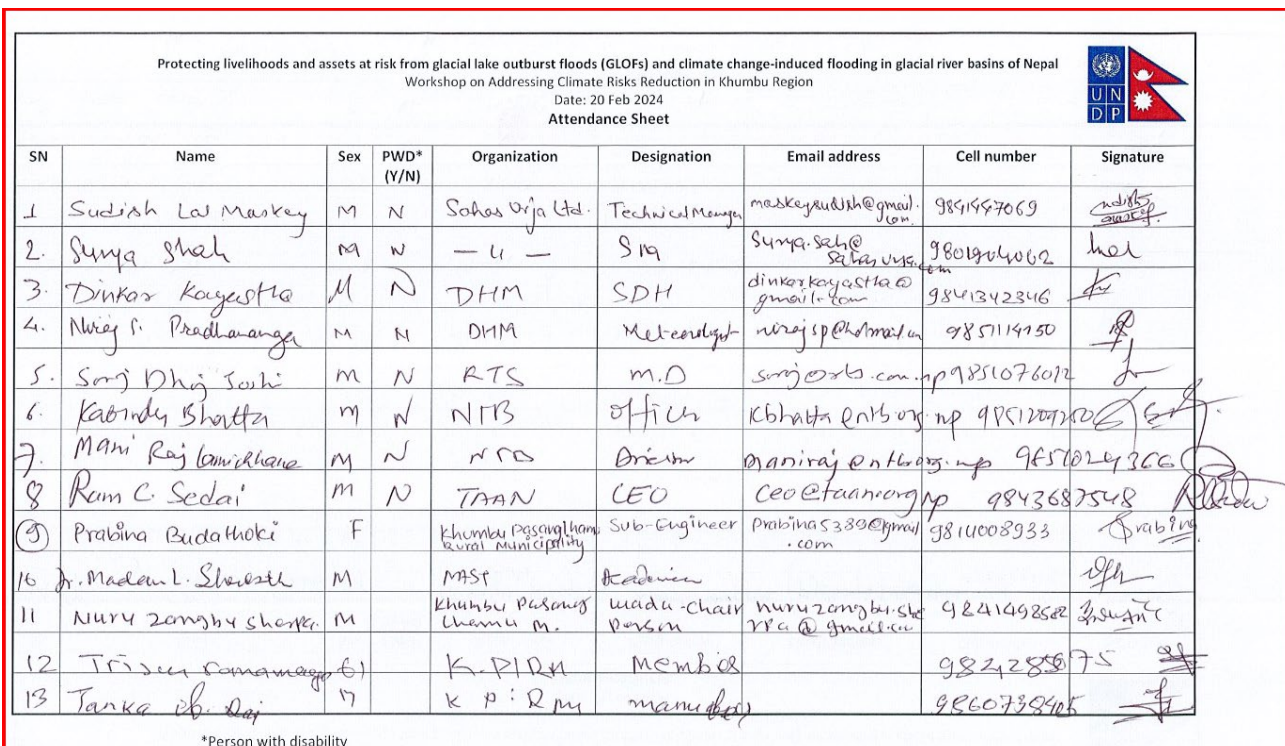 Protecting livelihoods and assets at risk from glacial lake outburst floods (GLOFs) and climate change-induced flooding in glacial river basins of Nepal
Workshop on Addressing Climate Risks Reduction in Khumbu Region
Date: 20 Feb 2024
Attendance Sheet
U N
D P
SN Name Sex PWD* (Y/N) Organization Designation Email address Cell number Signature
1 Sudish Lal Maskey M N Sahas Urja Ltd. Technical Manager maskeysudish@gmail.com 9841447069
2. Surya Shah M N — 11 —
3. Dinkar Kayastha M N DHM SDH dinkarkayastha@gmail.com 9841342346
4. Niraj S. Pradhananga M N DHM Meteorologist nirajsp@hotmail.com 9851114150
5. Dhoj Joshi M N RTS M.D 9851076012
6. Kabindra Bhatta M N NTB officer kbhatta@ntb.org.np
7. Mani Raj Lamichhane M N NTB Director maniraj@ntb.org.np 9851024366
8 Ram C. Sedai M N TAAN CEO Ceo@taan.org.np 9843687548
9 Prabina Budathoki F Khumbu Pasanglhamu Rural Municipality Sub-Engineer Prabina5389@gmail.com 9814008933 Prabina
10 Dr. Madan L. Shrestha M NAST Academician
11 Nuru zangbu sherpa. M Khumbu Pasang Lhamu M. wada-Chair person nuruzangbu.sherpa@gmail.com 9841498582
12 Member
13 Tanka
*Person with disability